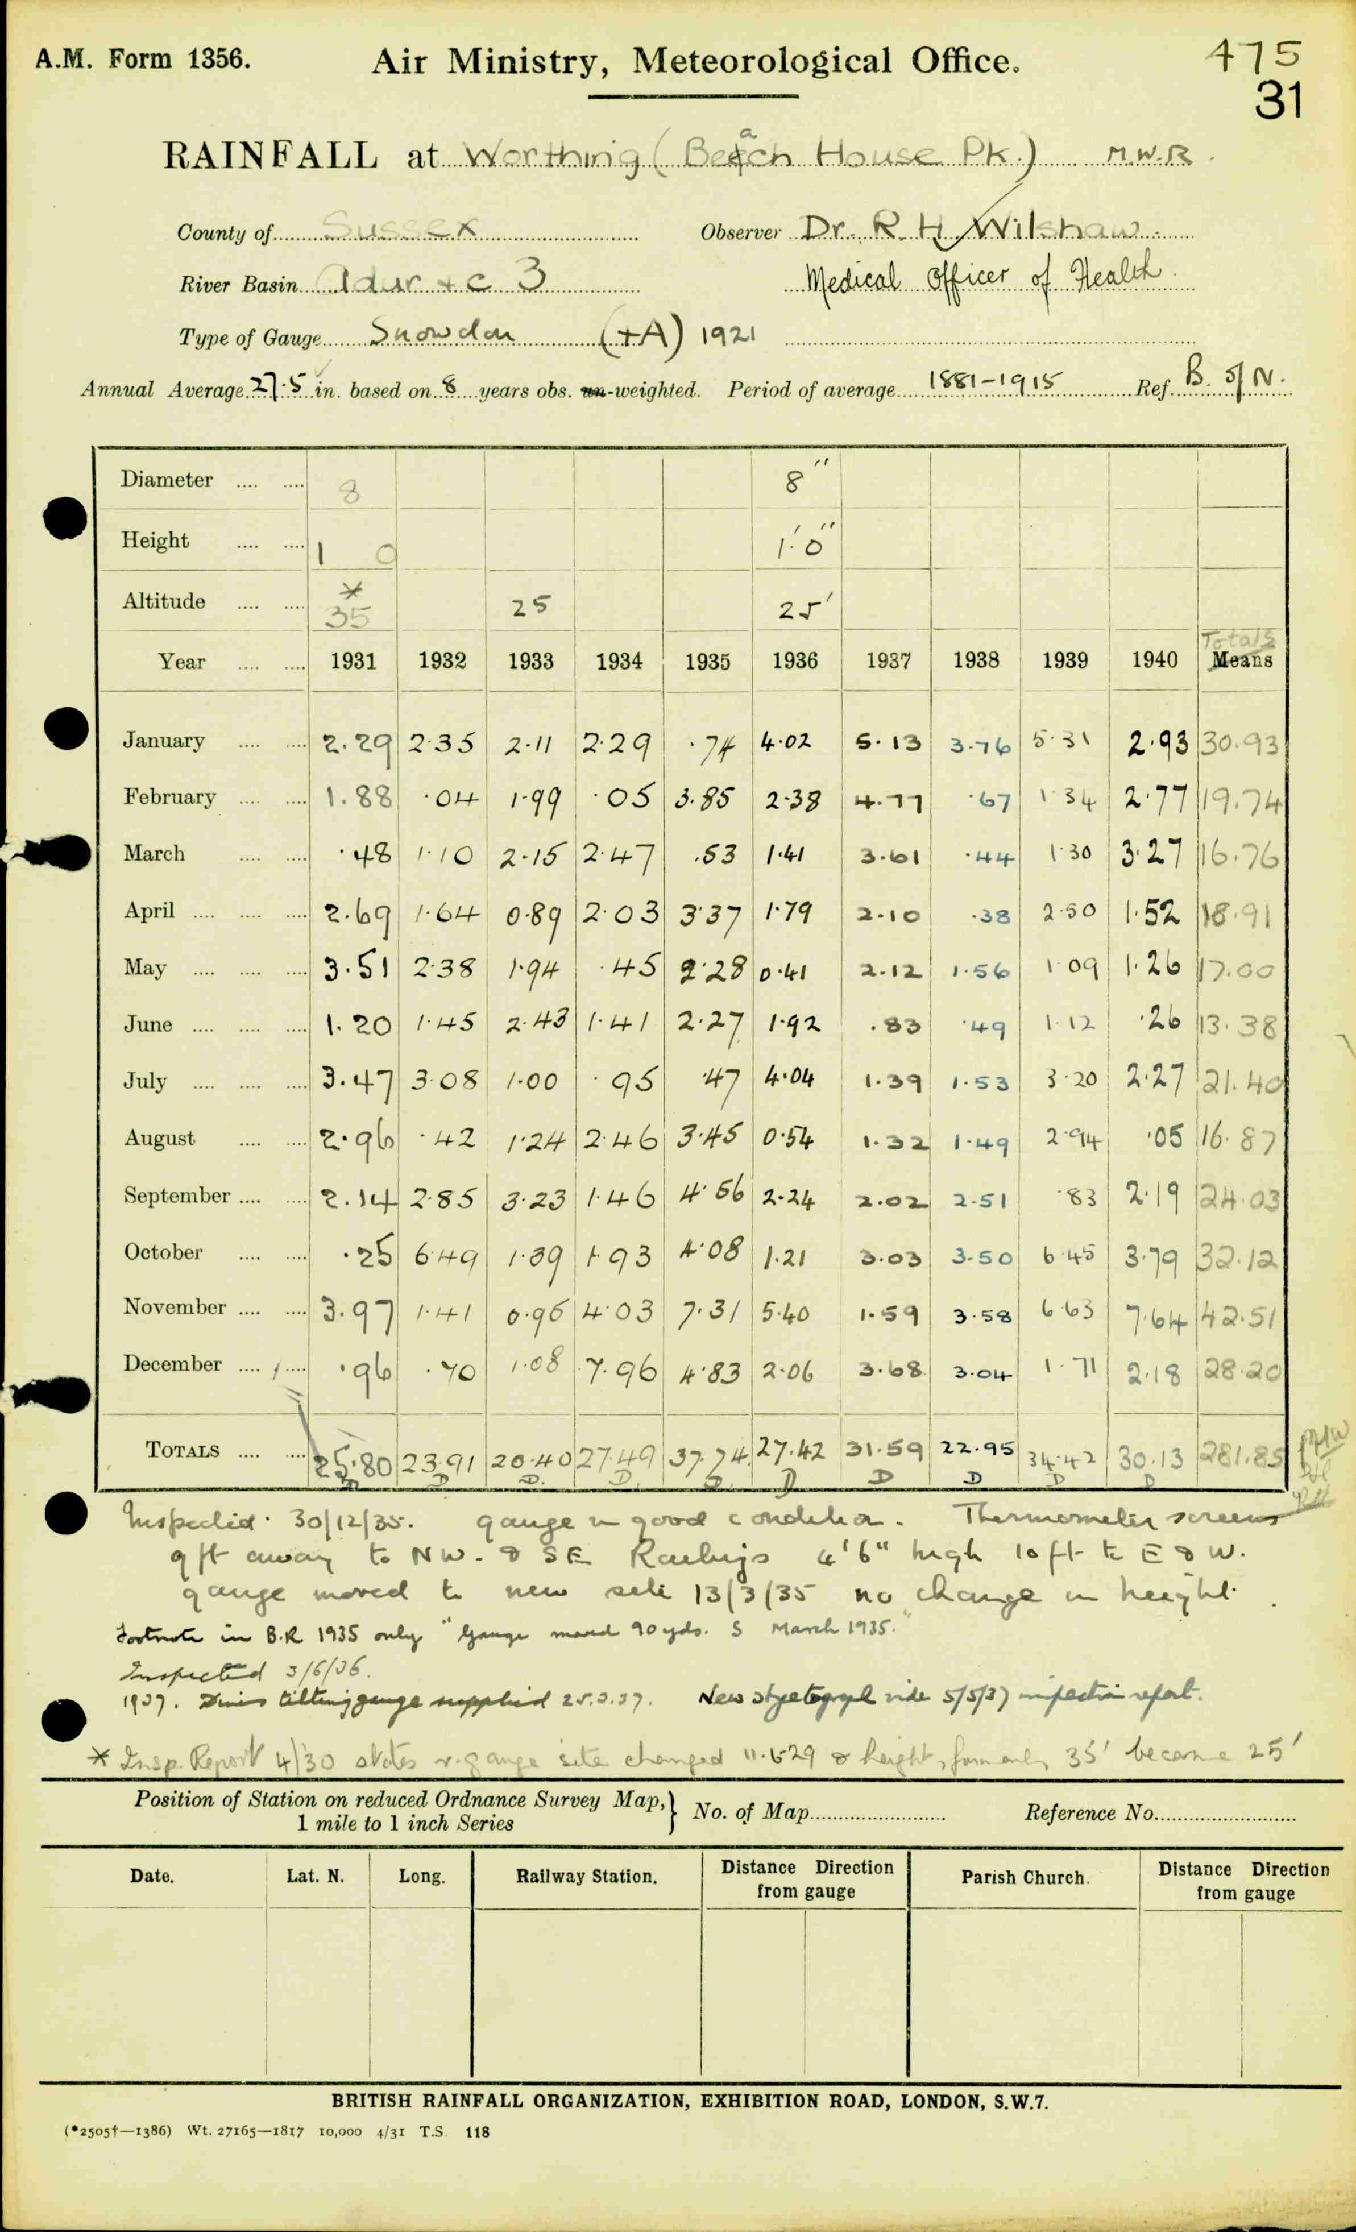 A.M. Form 1356. Air Ministry, Meteorological Office. 475
31
RAINFALL at Worthing (Beach House Pk.) M.W.R.
County of Sussex Observer Dr. R. H. Wilshaw.
River Basin Adur & C 3 Medical Officer of Health.
Type of Gauge Snowdon (+A) 1921
Annual Average 27.5 in. based on 8 years obs. un-weighted. Period of average 1881-1915 Ref. B. S/N.
Diameter 8 8"
Height 1 0 1'.0"
Altitude * 35 25 25'
Totals
Year 1931 1932 1933 1934 1935 1936 1937 1938 1939 1940 Means
January 2.29 2.35 2.11 2.29 .74 4.02 5.13 3.76 5.31 2.93 30.93
February 1.88 .04 1.99 .05 3.85 2.38 4.77 .67 1.34 2.77 19.74
March .48 1.10 2.15 2.47 .53 1.41 3.61 .44 1.30 3.27 16.76
April 2.69 1.64 0.89 2.03 3.37 1.79 2.10 .38 2.50 1.52 18.91
May 3.51 2.38 1.94 .45 2.28 0.41 2.12 1.56 1.09 1.26 17.00
June 1.20 1.45 2.43 1.41 2.27 1.92 .83 .49 1.12 .26 13.38
July 3.47 3.08 1.00 .95 .47 4.04 1.39 1.53 3.20 2.27 21.40
August 2.96 .42 1.24 2.46 3.45 0.54 1.32 1.49 2.94 .05 16.87
September 2.14 2.85 3.23 1.46 4.56 2.24 2.02 2.51 .83 2.19 24.03
October .25 6.49 1.39 1.93 4.08 1.21 3.03 3.50 6.45 3.79 32.12
November 3.97 1.41 0.95 4.03 7.31 5.40 1.59 3.58 6.63 7.64 42.51
December .96 .70 1.08 7.96 4.83 2.06 3.68 3.04 1.71 2.18 28.20
TOTALS 25.80 23.91 20.40 27.49 37.74 27.42 31.59 22.95 34.42 30.13 281.85
D D D D D D D D D D
Inspected. 30/12/35. gauge in good condition. Thermometer screens
9 ft away to NW. & SE Railings 4'6" high 10 ft to E & W.
gauge moved to new site 13/3/35 no change in height.
Footnote in B.R 1935 only "Gauge moved 90 yds. S March 1935."
Inspected 3/6/36.
1937. Dines tilting gauge supplied 25.3.37. New vide 5/5/37 inspection report.
* Insp. Report 4/30 states r. gauge site changed 11.6.29 & height, formerly 35' became 25'
Position of Station on reduced Ordnance Survey Map, 1 mile to 1 inch Series } No. of Map Reference No.
Date. Lat. N. Long. Railway Station. Distance Direction from gauge Parish Church. Distance Direction from gauge
BRITISH RAINFALL ORGANIZATION, EXHIBITION ROAD, LONDON, S.W.7.
(*2505†—1386) Wt. 27165—1817 10,000 4/31 T.S. 118